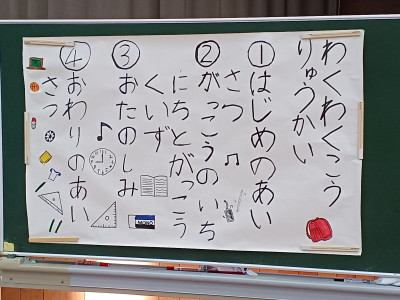 わくわくこう
りゅうかい
①はじめのあい
さつ
②がっこうのいち
にちとがっこう
くいず
③おたのしみ
④おわりのあい
さつ
MONO